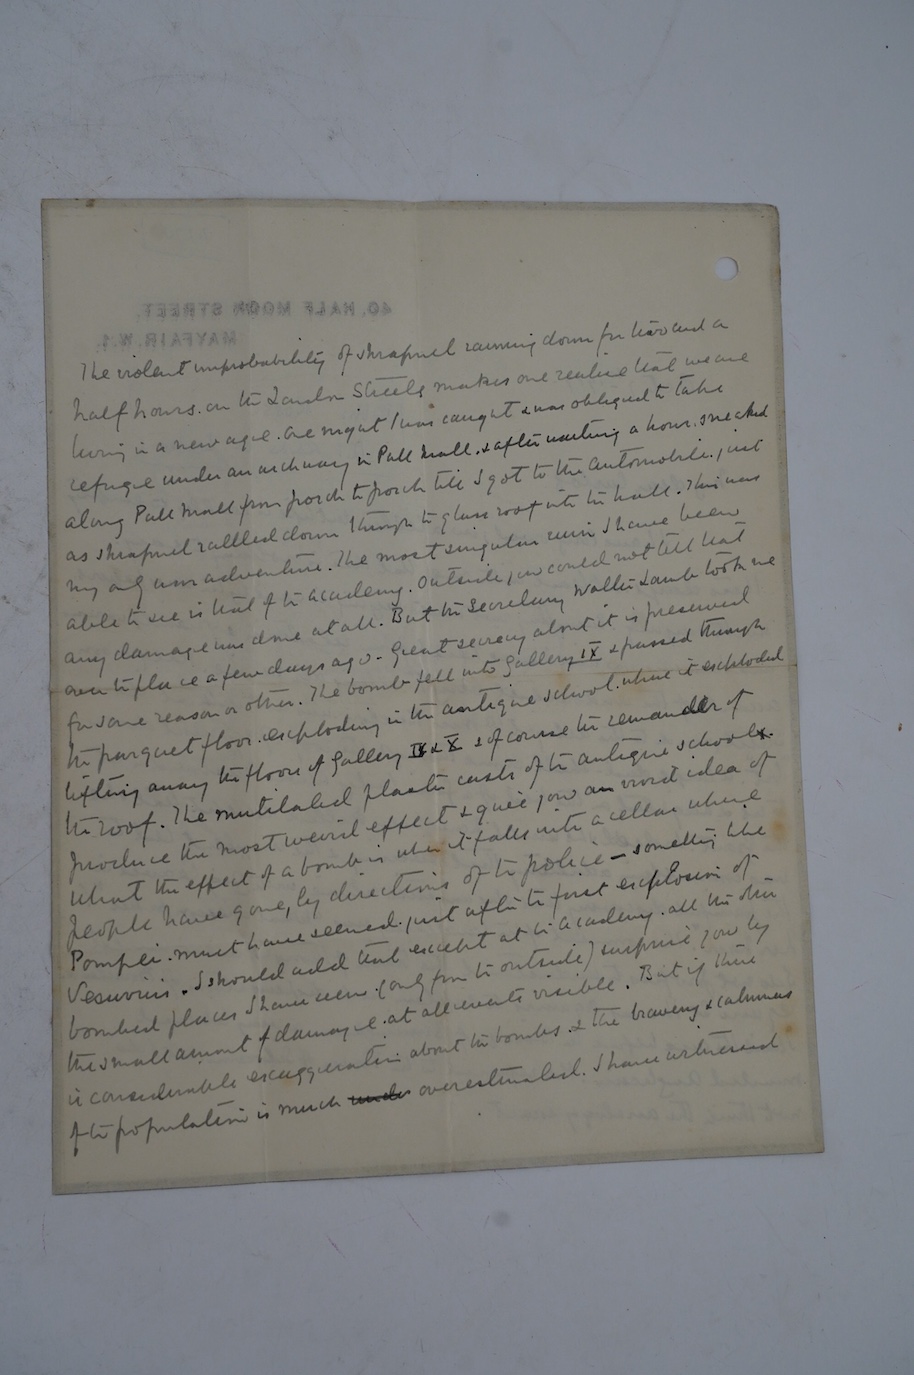 40, HALF MOON STREET,
MAYFAIR. W.1.
The violent improbability of shrapnel raining down for two and a
half hours. on the London Streets makes one realise that we are
living in a new age. One night I was caught & was obliged to take
refuge under an archway in Pall Mall. & after waiting a hour. sneaked
along Pall Mall from porch to porch till I got to the automobile. just
as shrapnel rattled down through the glass roof into the hall. This was
my only war adventure. The most singular ruin I have been
able to see is that of the Academy. Outside, you could not tell that
any damage was done at all. But the Secretary Walter Lamb took me
over the place a few days ago. Great secrecy about it is preserved
for some reason or other. The bomb fell into Gallery IX & passed through
the parquet floor. exploding in the antique school. where it exploded
lifting away the floors of Gallery IX & X & of course the remainder of
the roof. The mutilated plaster casts of the antique school
produce the most weird effect & give you an vivid idea of
what the effect of a bomb is when it falls into a cellar where
people have gone, by directions of the police – something like
Pompei. must have seemed. just after the first explosion of
Vesuvius. I should add that except at the Academy. all the other
bombed places I have seen. (only from the outside) surprise you by
the small amount of damage. at all events visible. But if there
is considerable exaggeration about the bombs. & the bravery & calmness
of the population is much under overestimated. I have witnessed